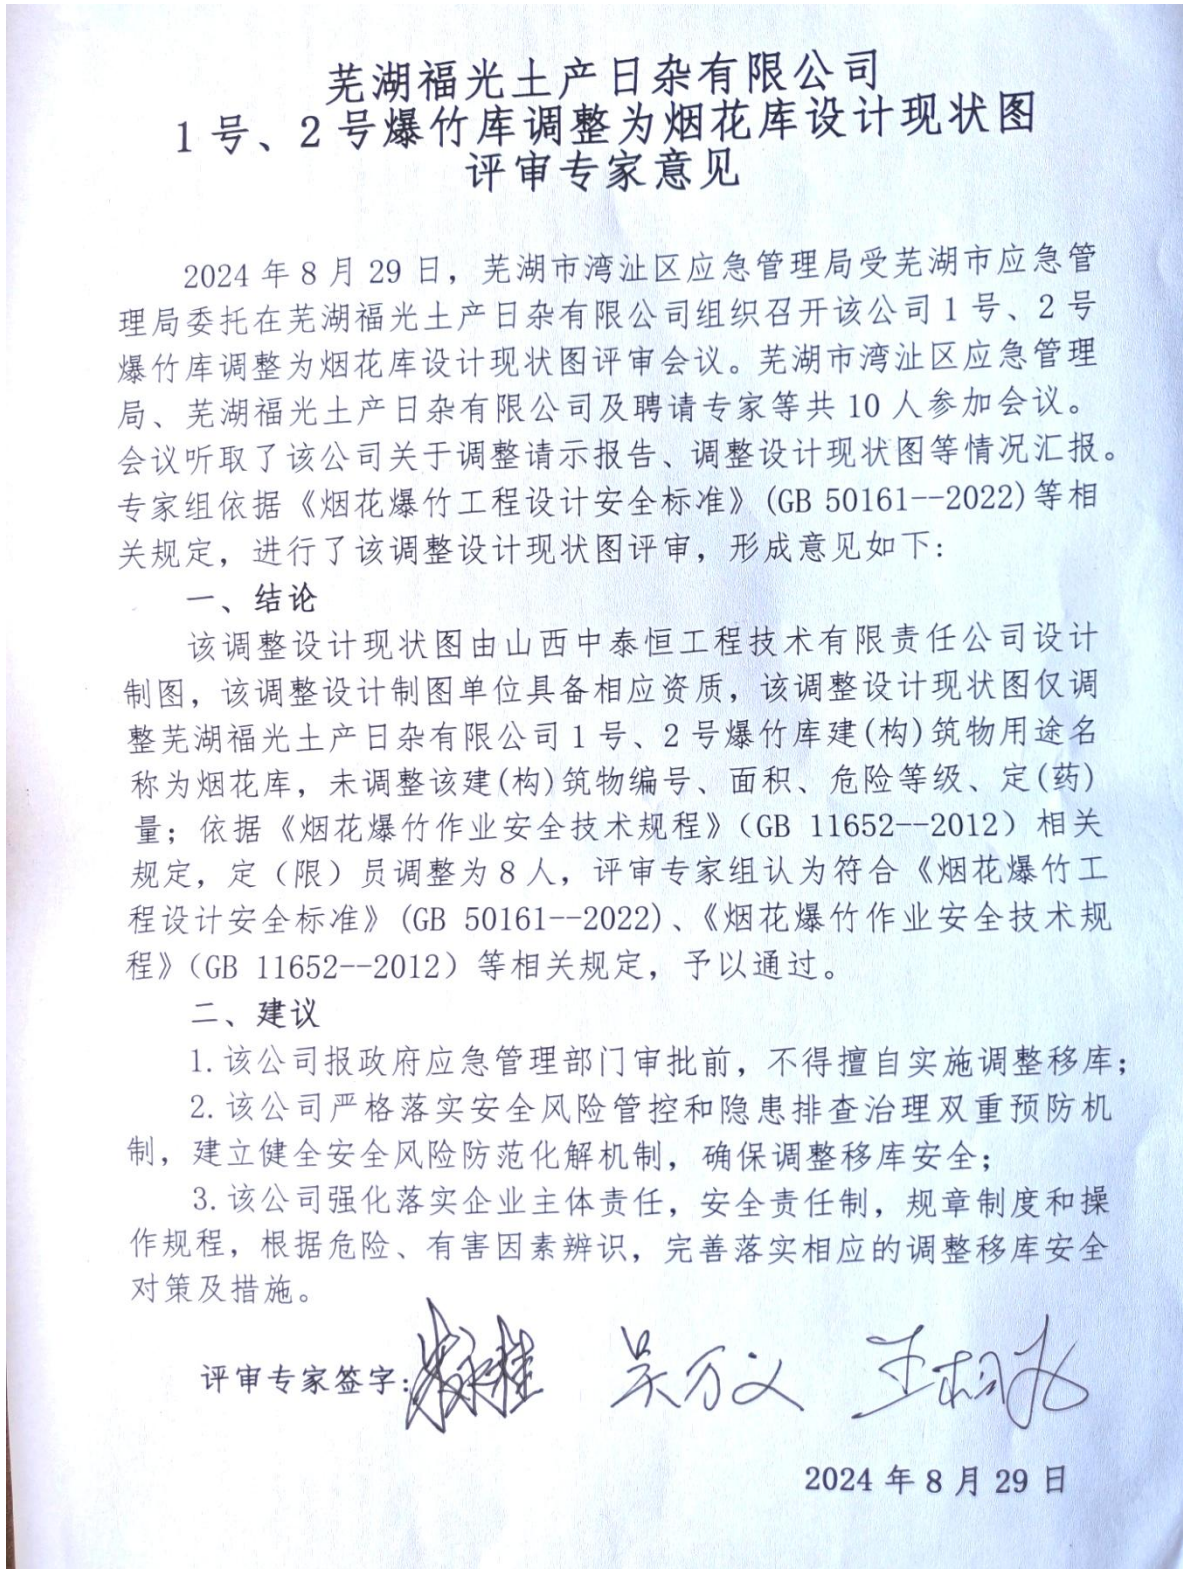 芜湖福光土产日杂有限公司
1号、2号爆竹库调整为烟花库设计现状图
评审专家意见
2024年8月29日，芜湖市湾沚区应急管理局受芜湖市应急管
理局委托在芜湖福光土产日杂有限公司组织召开该公司1号、2号
爆竹库调整为烟花库设计现状图评审会议。芜湖市湾沚区应急管理
局、芜湖福光土产日杂有限公司及聘请专家等共10人参加会议。
会议听取了该公司关于调整请示报告、调整设计现状图等情况汇报。
专家组依据《烟花爆竹工程设计安全标准》(GB 50161--2022)等相
关规定，进行了该调整设计现状图评审，形成意见如下:
一、结论
该调整设计现状图由山西中泰恒工程技术有限责任公司设计
制图，该调整设计制图单位具备相应资质，该调整设计现状图仅调
整芜湖福光土产日杂有限公司1号、2号爆竹库建(构)筑物用途名
称为烟花库，未调整该建(构)筑物编号、面积、危险等级、定(药)
量；依据《烟花爆竹作业安全技术规程》（GB 11652--2012）相关
规定，定（限）员调整为8人，评审专家组认为符合《烟花爆竹工
程设计安全标准》(GB 50161--2022)、《烟花爆竹作业安全技术规
程》（GB 11652--2012）等相关规定，予以通过。
二、建议
1.该公司报政府应急管理部门审批前，不得擅自实施调整移库；
2.该公司严格落实安全风险管控和隐患排查治理双重预防机
制，建立健全安全风险防范化解机制，确保调整移库安全；
3.该公司强化落实企业主体责任，安全责任制，规章制度和操
作规程，根据危险、有害因素辨识，完善落实相应的调整移库安全
对策及措施。
评审专家签字: 吴万义
2024年8月29日